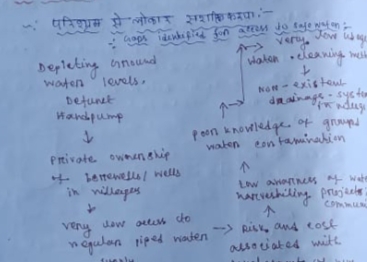 परिश्रम से
Gaps identified for access to safe water:-
Depleting Ground
water levels.
Defunct
Handpump
↓
Private ownership
of borewells/wells
in villages
↓
very low access to
regular piped water
→ Risk and cost
associated with
↑
Low awareness of
harvesting projects
↑
Poor knowledge of ground
water contamination
→ very low
water cleaning
↓
Non-existent
drainage